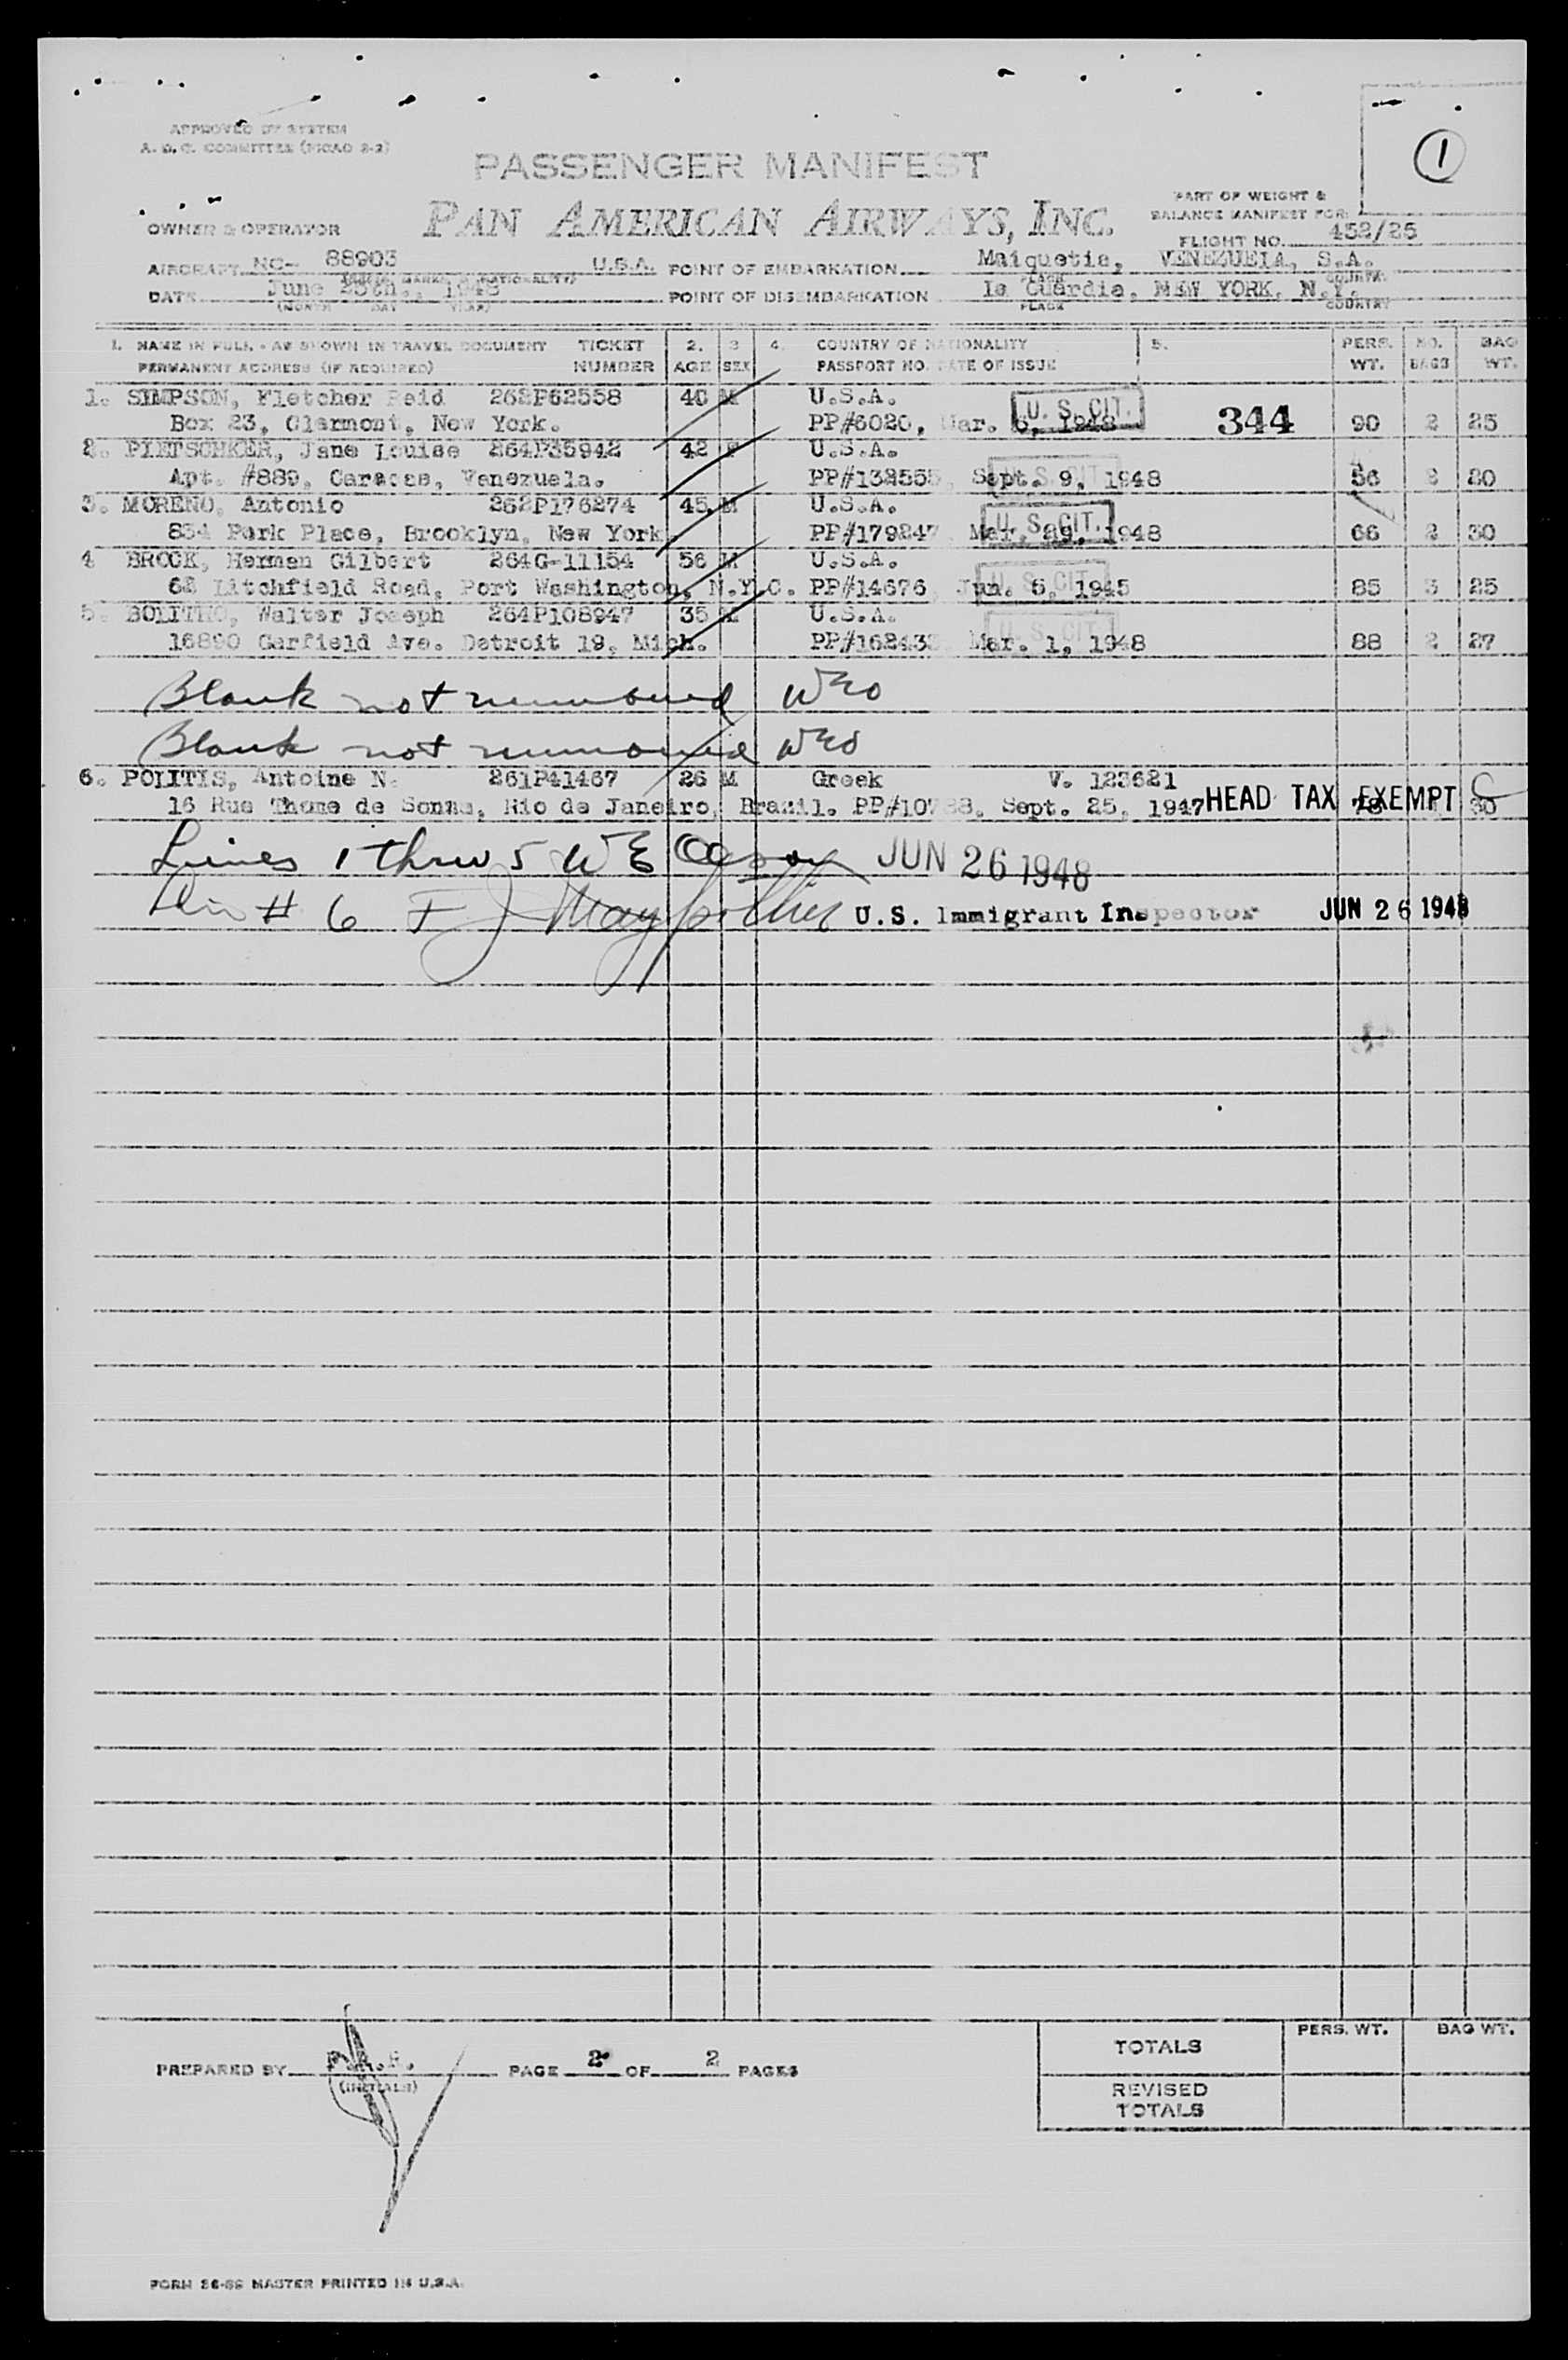 APPROVED BY SYSTEM
A.D.C. COMMITTEE (PICAO 2-2)
1
PASSENGER MANIFEST
PART OF WEIGHT &
BALANCE MANIFEST FOR:
OWNER & OPERATOR PAN AMERICAN AIRWAYS, INC.
FLIGHT NO. 452/25
AIRCRAFT NC- 88903 U.S.A. POINT OF EMBARKATION Maiquetia, VENEZUELA, S.A.
PLACE COUNTRY
DATE June 25th, 1948 POINT OF DISEMBARKATION La Guardia, NEW YORK, N.Y.
(MONTH DAY YEAR) PLACE COUNTRY
1. NAME IN FULL - AS SHOWN IN TRAVEL DOCUMENT TICKET 2. 3 4. COUNTRY OF NATIONALITY 5. PERS. NO. BAG
PERMANENT ADDRESS (IF REQUIRED) NUMBER AGE SEX PASSPORT NO. DATE OF ISSUE WT. BAGS WT.
1. SIMPSON, Fletcher Reid 262P62558 40 M U.S.A.
U. S. CIT.
Box 23, Clermont, New York. PP#6020, Mar. 6, 1948 344 90 2 25
2. PIETSCHKER, Jane Louise 264P35942 42 F U.S.A.
U. S. CIT.
Apt. #889, Caracas, Venezuela. PP#132555, Sept. 9, 1948 56 2 20
3. MORENO, Antonio 262P176274 45 M U.S.A.
U. S. CIT.
834 Park Place, Brooklyn, New York PP#179247 Mar. 29, 1948 66 2 30
4 BROCK, Herman Gilbert 264G-11154 56 M U.S.A.
U. S. CIT.
62 Litchfield Road, Port Washington, N.Y.C. PP#14676, Jun. 6, 1945 85 3 25
5. BOLITHO, Walter Joseph 264P108947 35 M U.S.A.
U. S. CIT.
16890 Garfield Ave. Detroit 19, Mich. PP#162433 Mar. 1, 1948 88 2 27
Blank not numbered WEO
Blank not numbered WEO
6. POLITIS, Antoine N. 261P41467 26 M Greek V. 123621
16 Rue Thome de Sonza, Rio de Janeiro, Brazil. PP#10788, Sept. 25, 1947 HEAD TAX EXEMPT 78 30
Lines 1 thru 5 WE JUN 26 1948
# 6 U.S. Immigrant Inspector JUN 26 1948
PERS. WT. BAG WT.
TOTALS
PREPARED BY
(INITIALS)
PAGE 2 OF 2 PAGES
REVISED
TOTALS
FORM 26-59 MASTER PRINTED IN U.S.A.